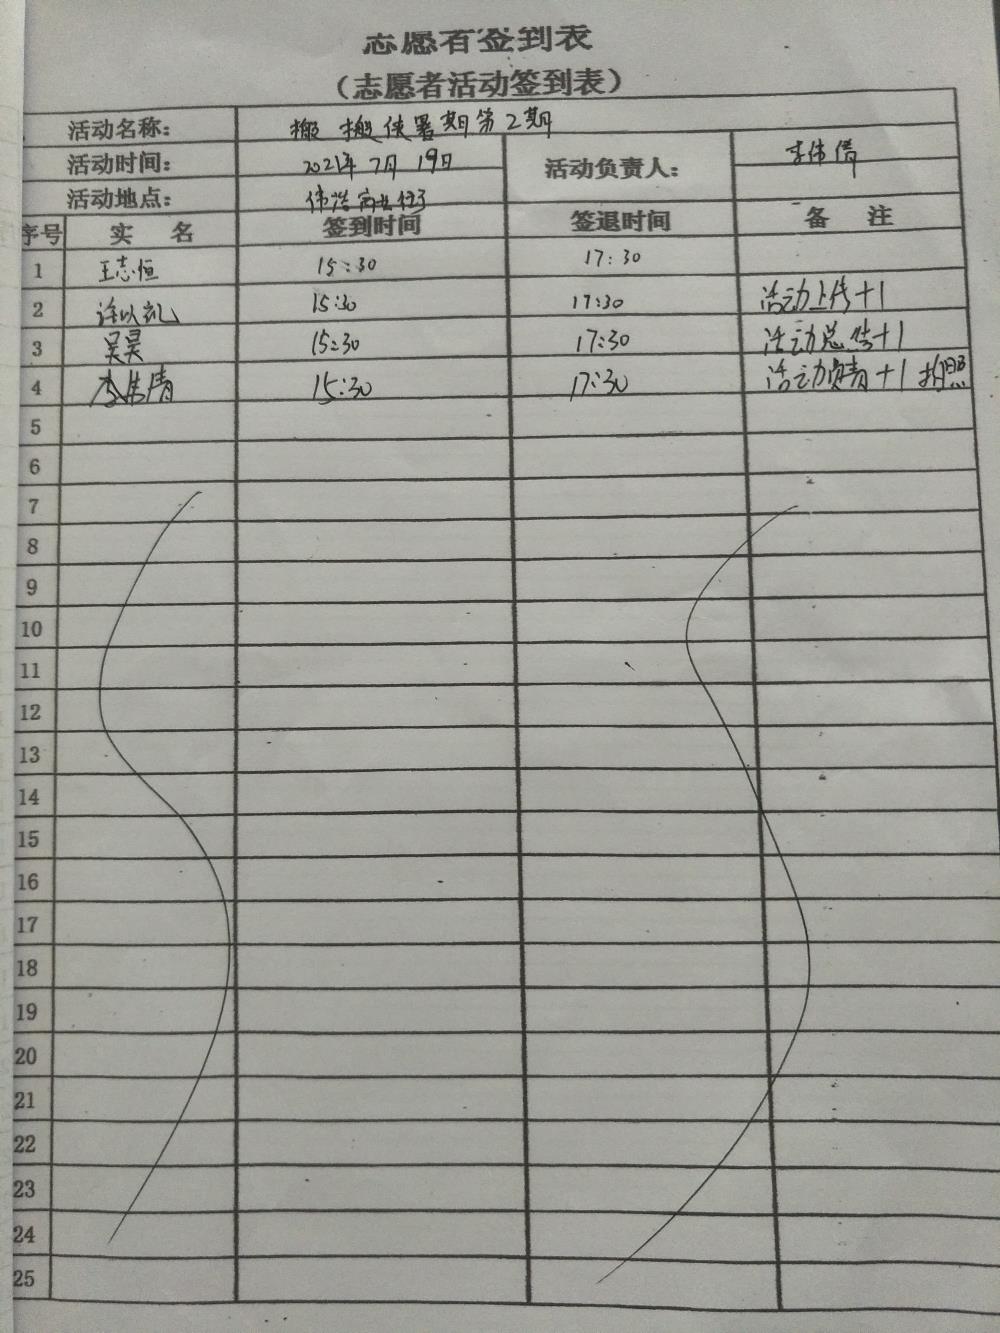 志愿者签到表
（志愿者活动签到表）
活动名称： 搬搬侠暑期第2期
活动时间： 2021年7月19日 活动负责人： 李伟倩
活动地点：
序号 实 名 签到时间 签退时间 备 注
1 王志恒 15:30 17:30
2 许以礼 15:30 17:30 活动上传+1
3 吴昊 15:30 17:30 活动总结+1
4 李伟倩 15:30 17:30 活动负责+1 拍照
5
6
7
8
9
10
11
12
13
14
15
16
17
18
19
20
21
22
23
24
25